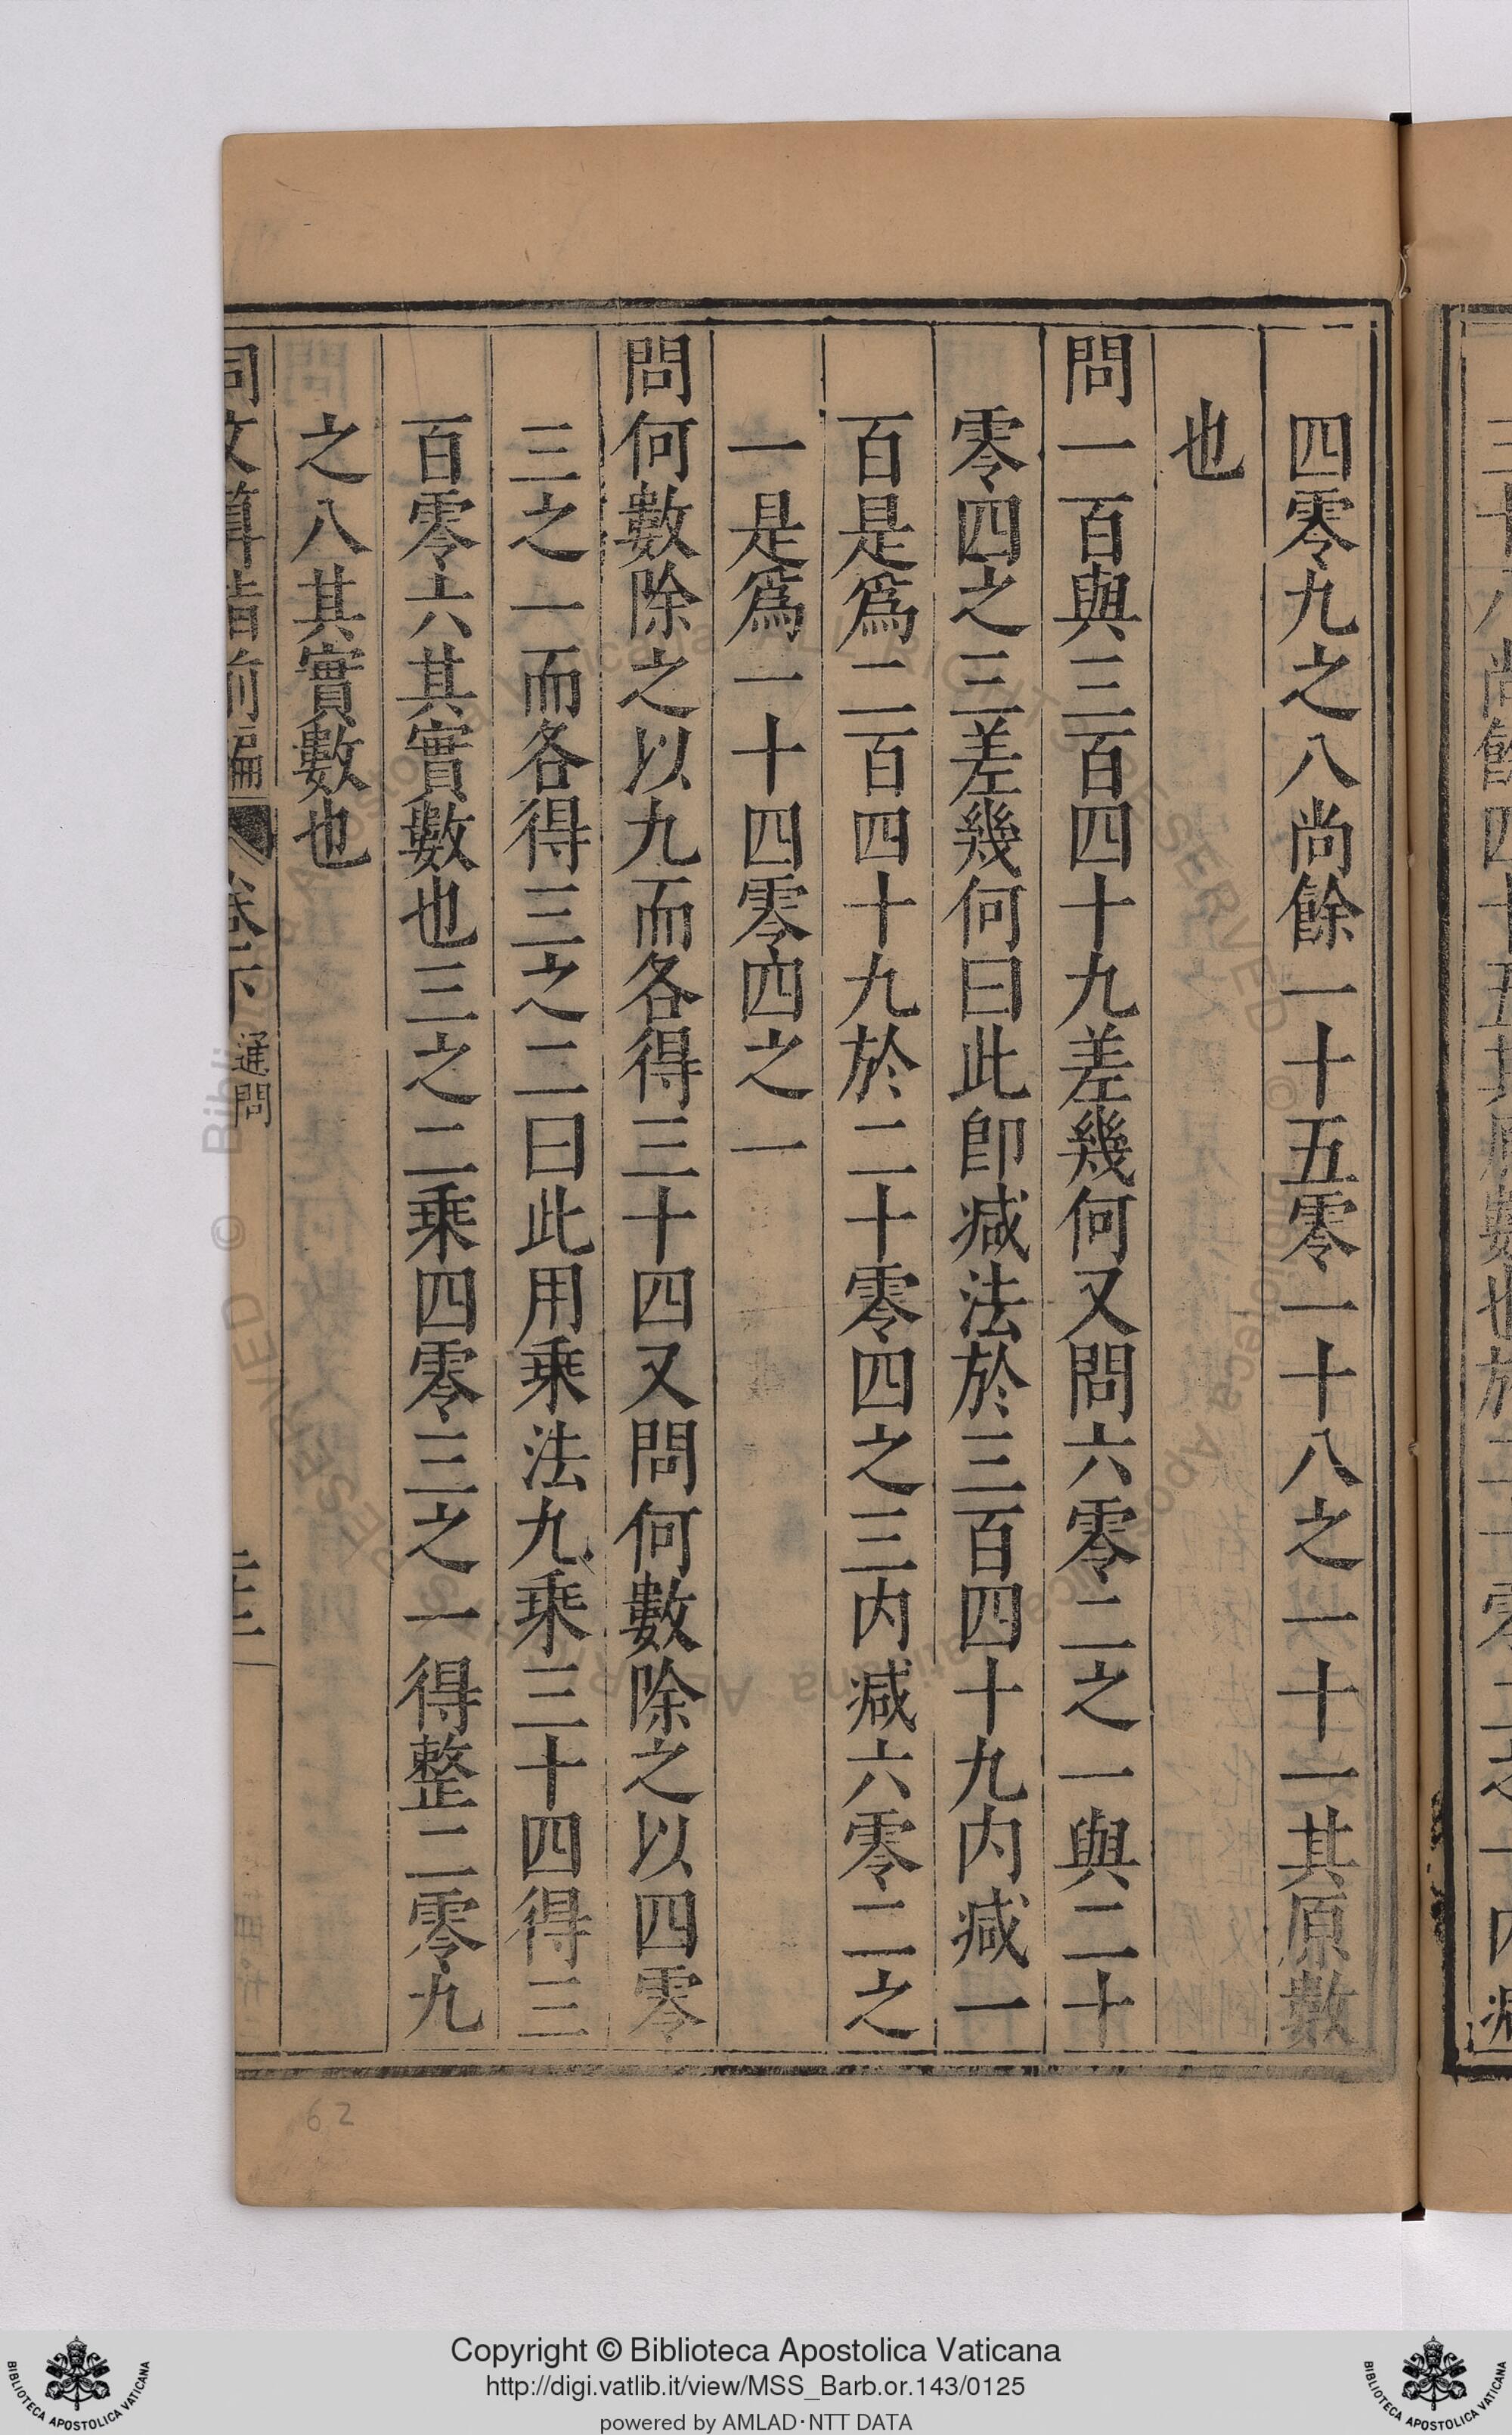 四零九之八尚餘一十五零一十八之一十一其原數
也
問一百與三百四十九差幾何又問六零二之一與二十
零四之三差幾何曰此卽减法於三百四十九内减一
百是爲二百四十九於二十零四之三内减六零二之
一是爲一十四零四之一
問何數除之以九而各得三十四又問何數除之以四零
三之一而各得三之二曰此用乗法九乗三十四得三
百零六其實數也三之二乗四零三之一得整二零九
之八其實數也
同文算指前編 卷下 通問
62
Copyright © Biblioteca Apostolica Vaticana
http://digi.vatlib.it/view/MSS_Barb.or.143/0125
powered by AMLAD·NTT DATA
BIBLIOTECA APOSTOLICA VATICANA
BIBLIOTECA APOSTOLICA VATICANA